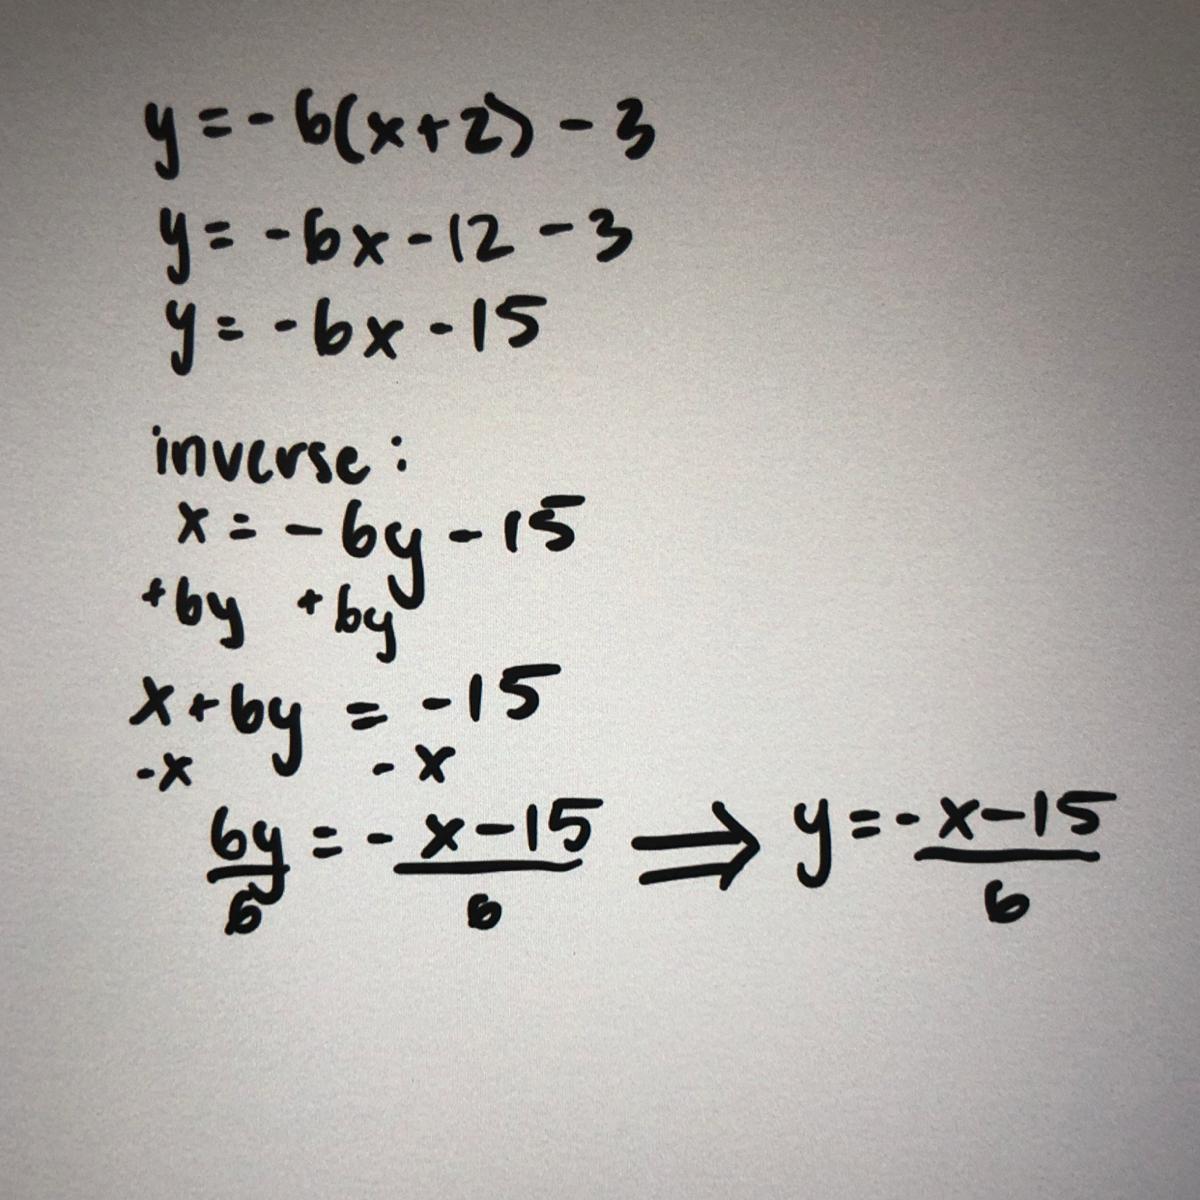 y = -6(x+2) - 3
y = -6x - 12 - 3
y = -6x - 15
inverse:
x = -6y - 15
+6y +6y
x+6y = -15
-x -x
6y/6 = - x-15/6 ⟹ y = - x-15/6